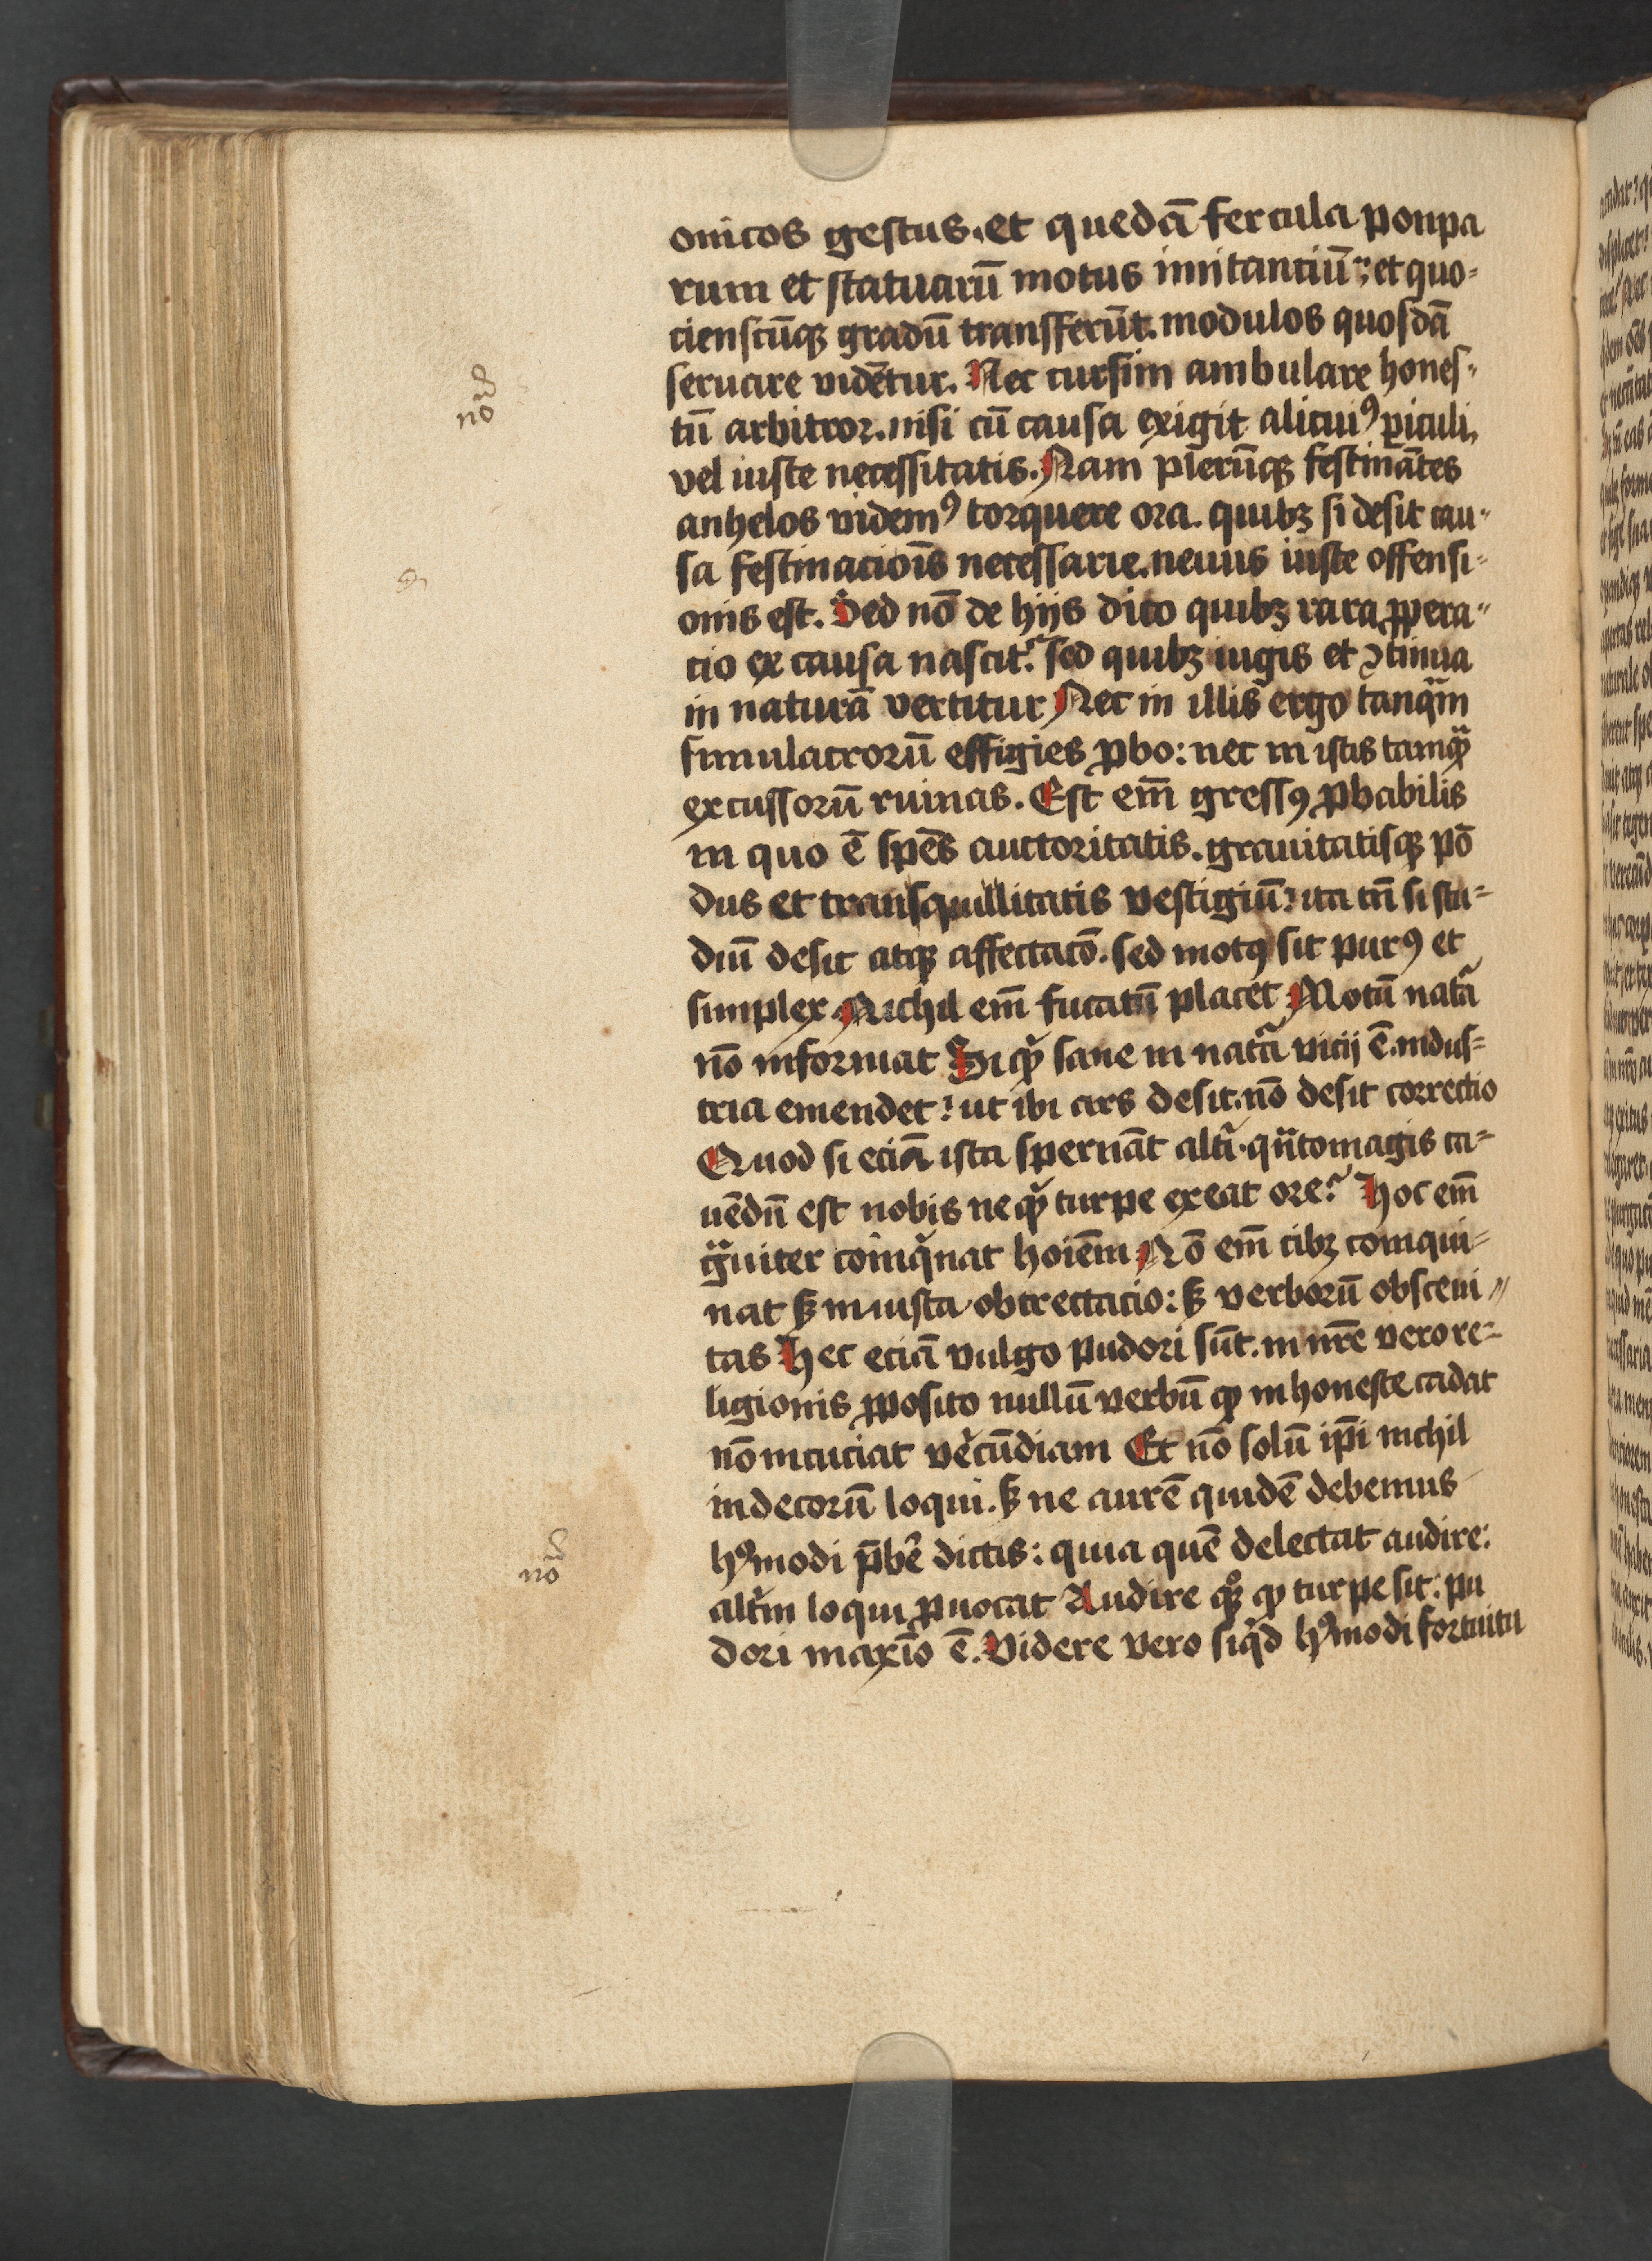 onicos gestus. et quedā fercula ponpa
rum et statuarū motus imitanciū; et quo-
cienscūqꝫ gradū transferūt. modulos quosdā
seruare vidētur. Nec cursim ambulare hones-
tū arbitror. nisi cū causa exigit alicuiꝰ ꝑiculi,
vel iuste necessitatis. Nam plerūqꝫ festinātes
anhelos videmꝰ torquere ora. quibꝫ si desit cau-
sa festinaciois̄ necessarie. neuus iuste offensi-
onis est. Sed nō de hijs dico quibꝫ rara ꝓpera-
cio ex causa nascit᷑. sed quibꝫ iugis et ꝯtinua
in naturā vertitur Nec in illis ergo tanqᷓm
simulacrorū effigies ꝓbo: nec in istis tamqᷓꝫ
excussorū ruinas. Est em̄ gressꝰ ꝓbabilis
in quo ē spēs auctoritatis. grauitatisqꝫ pō
dus et transquillitatis vestigiū? ita tn̄ si stu-
diū desit atqꝫ affectacō. sed motꝰ sit purꝰ et
simplex. Nichil em̄ fucatū placet Motū natᷓā
nō informat Si qꝫ̉ sane in natᷓā vicij ē. indus-
tria emendet? ut ibi ars desit. nō desit correctio
Quod si eciā ista spernāt alt̉i. qn̄tomagis ca-
uēdū est nobis ne qꝫ̉ turpe exeat ore? Hoc em̄
gᷓuiter coinqͥnat hoiēm Nō em̄ cibꝫ coinqui-
nat sꝫ iniusta obtrectacio: sꝫ verborū obsceni-
tas Hec eciā vulgo pudori sūt. in nr̄e vero re-
ligionis ꝓposito nullū verbū ꝙ inhoneste cadat
nō incuciat verecūdiam Et nō solū ip̄i nichil
indecorū loqui. sꝫ ne aurē quidē debemus
hꝰmodi p̄bere dictis: quia quē delectat audire:
alt̉m loqui ꝓuocat Audire qꝫͦ ꝙ turpe sit: pu
dori maxīo ē. Videre vero siqͥd hꝰmodi fortuitu
no
no